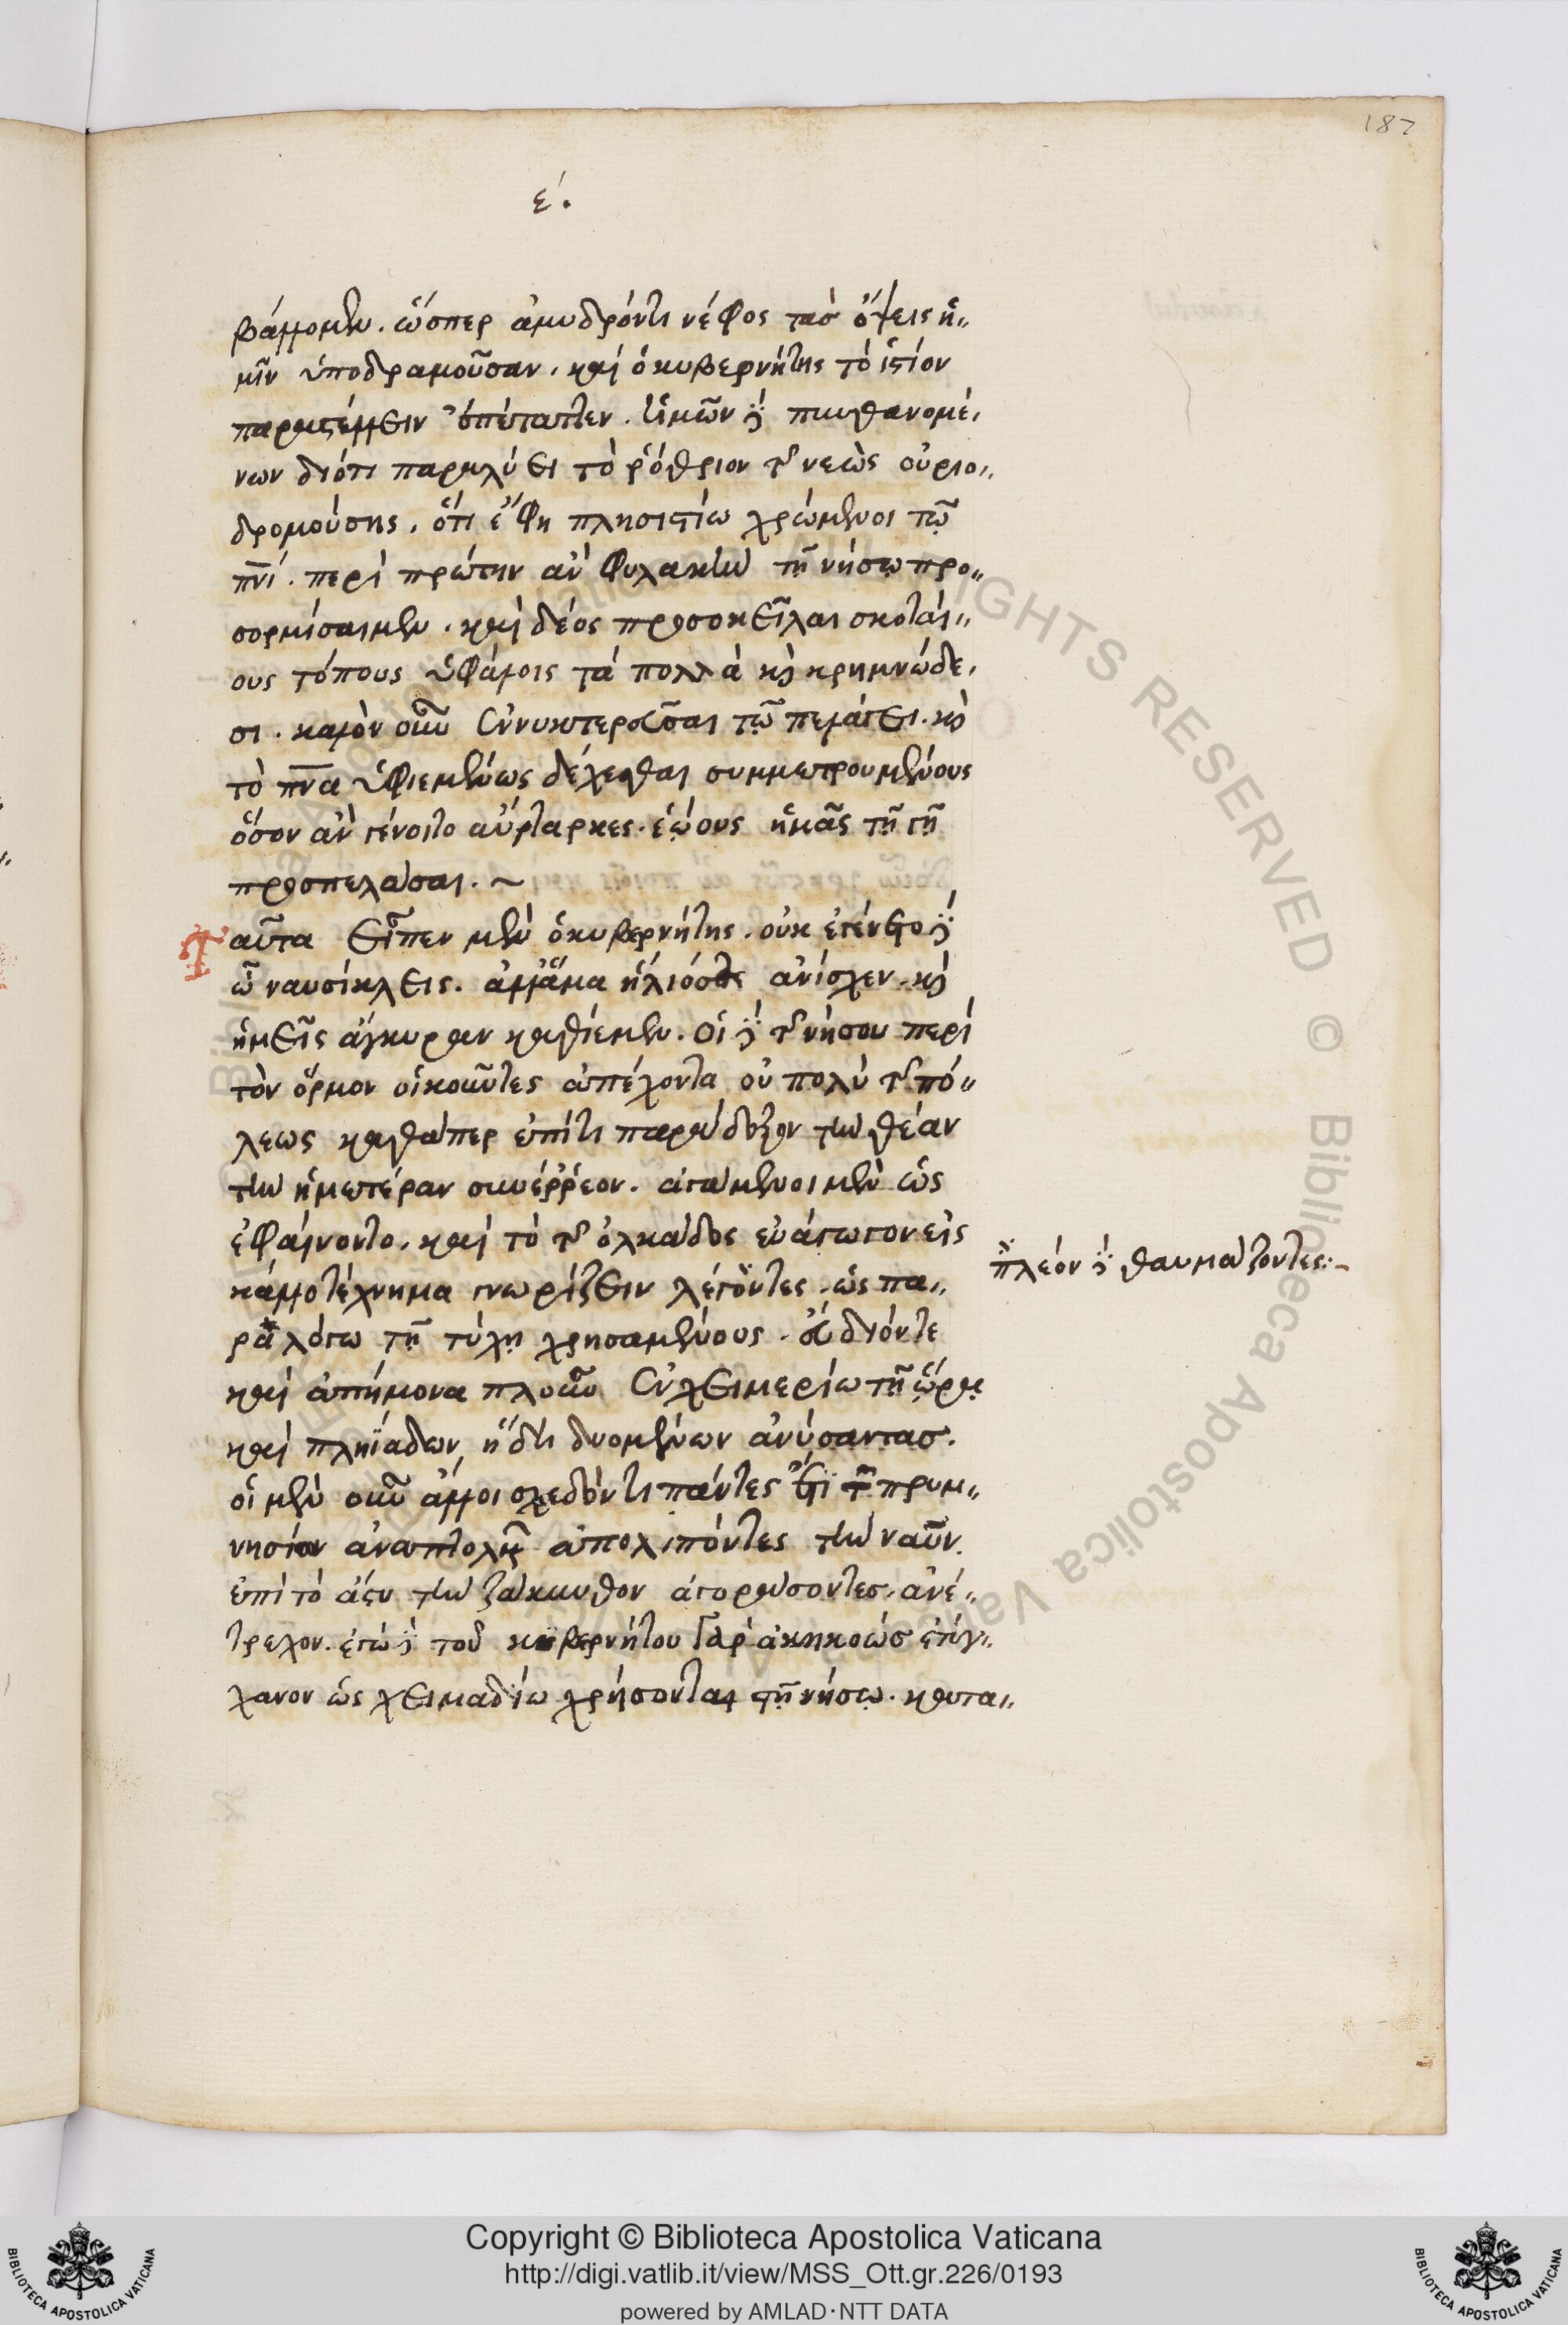 187
ε΄.
βάλλομεν. ὥσπερ ἀμυδρόντι νέφος τὰσ ὄψεις ἡ
μῖν ὑποδραμοῦσαν. καὶ ὁ κυβερνήτης τὸ ἱστίον
παραστέλλειν ἐπέταττεν. ἡμῶν δὲ πυνθανομέ
νων διότι παραλύει τὸ ῥόθριον τῆς νεὼς οὐριο
δρομούσης, ὅτι ἔφη πλησιστίω χρώμενοι τῷ
πνι. περὶ πρώτην ἂν φυλακὴν τῇ νήσῳ προ
σορμίσαιμεν. καὶ δέος προσοκεῖλαι σκοταί
ους τόπους ὑφάλοις τὰ πολλὰ καὶ κρημνώδε
σι. καλὸν οὖν ἐννυκτερεῦσαι τῷ πελάγει. καὶ
τὸ πνα ὑφιεμένως δέχεσθαι συμμετρουμένους
ὅσον ἂν γένοιτο αὔταρκες. ἑῴους ἡμᾶς τῇ γῇ
προσπελάσαι. ~
Ταῦτα εἶπεν μὲν ὁ κυβερνήτης. οὐκ ἐγένετο δὲ
ὦ ναυσίκλεις. ἀλλ' ἅμα ἥλιόστε ἀνίσχεν. καὶ
ἡμεῖς ἄγκυραν καθίεμεν. οἱ δὲ τῆς νήσου περὶ
τὸν ὅρμον οἰκοῦντες ἀπέχοντα οὐ πολὺ τῆς πό
λεως καθάπερ ἐπί τι παράδοξον τὴν θέαν
τὴν ἡμετέραν συνέρρεον. ἀγάμενοι μὲν ὡς
ἐφαίνοντο. καὶ τὸ τῆς ὁλκάδος εὐάγωγον εἰς
πλέον δὲ θαυμάζοντες:-
κάλλοτέχνημα γνωρίζειν λέγοντες. ὡς πα
ρα λόγω τῇ τύχῃ χρησαμένους. εὔδιόντε
καὶ ἀπήμονα πλοῦν ἐν χειμερίω τῇ ὥρᾳ
καὶ πληϊάδων ἤδη δυομένων ἀνύσαντασ.
οἱ μὲν οὖν ἄλλοι σχεδόν τι πάντες ἔτι τῶν πρυμ
νησίων ἀναπτομένων ἀπολιπόντες τὴν ναῦν.
ἐπὶ τὸ ἄστυ τὴν ζάκυνθον ἀγοράσοντες, ἀνέ
τρεχον. ἐγὼ δὲ τοῦ κυβερνήτου γὰρ ἀκηκοὼσ ἐτύγ
χανον ὡς χειμαδίω χρήσονται τῇ νήσῳ. κατα
Copyright © Biblioteca Apostolica Vaticana
http://digi.vatlib.it/view/MSS_Ott.gr.226/0193
powered by AMLAD·NTT DATA